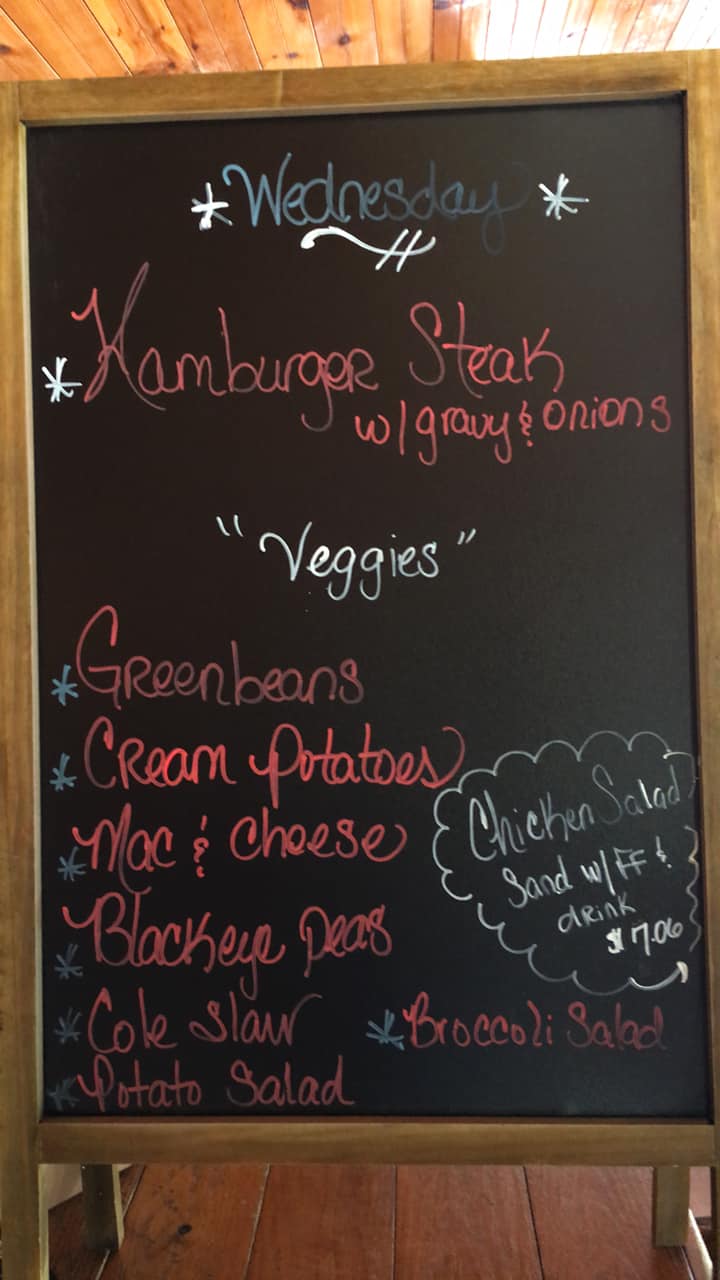 * Wednesday *
* Hamburger Steak
w/ gravy & onions
"Veggies"
* Greenbeans
* Cream Potatoes
* Mac & Cheese
* Blackeye Peas
* Cole Slaw
* Potato Salad
* Broccoli Salad
Chicken Salad
Sand w/ FF &
drink
$7.06